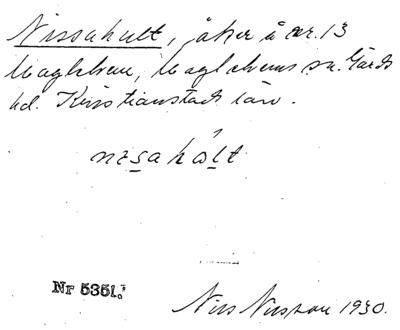 Nissahult, åker å nr. 13
Maglehem, Maglehems sn. Gärds
hd. Kristianstads län.
nɪsahált
Nr 5351.
Nils Nilsson 1930.